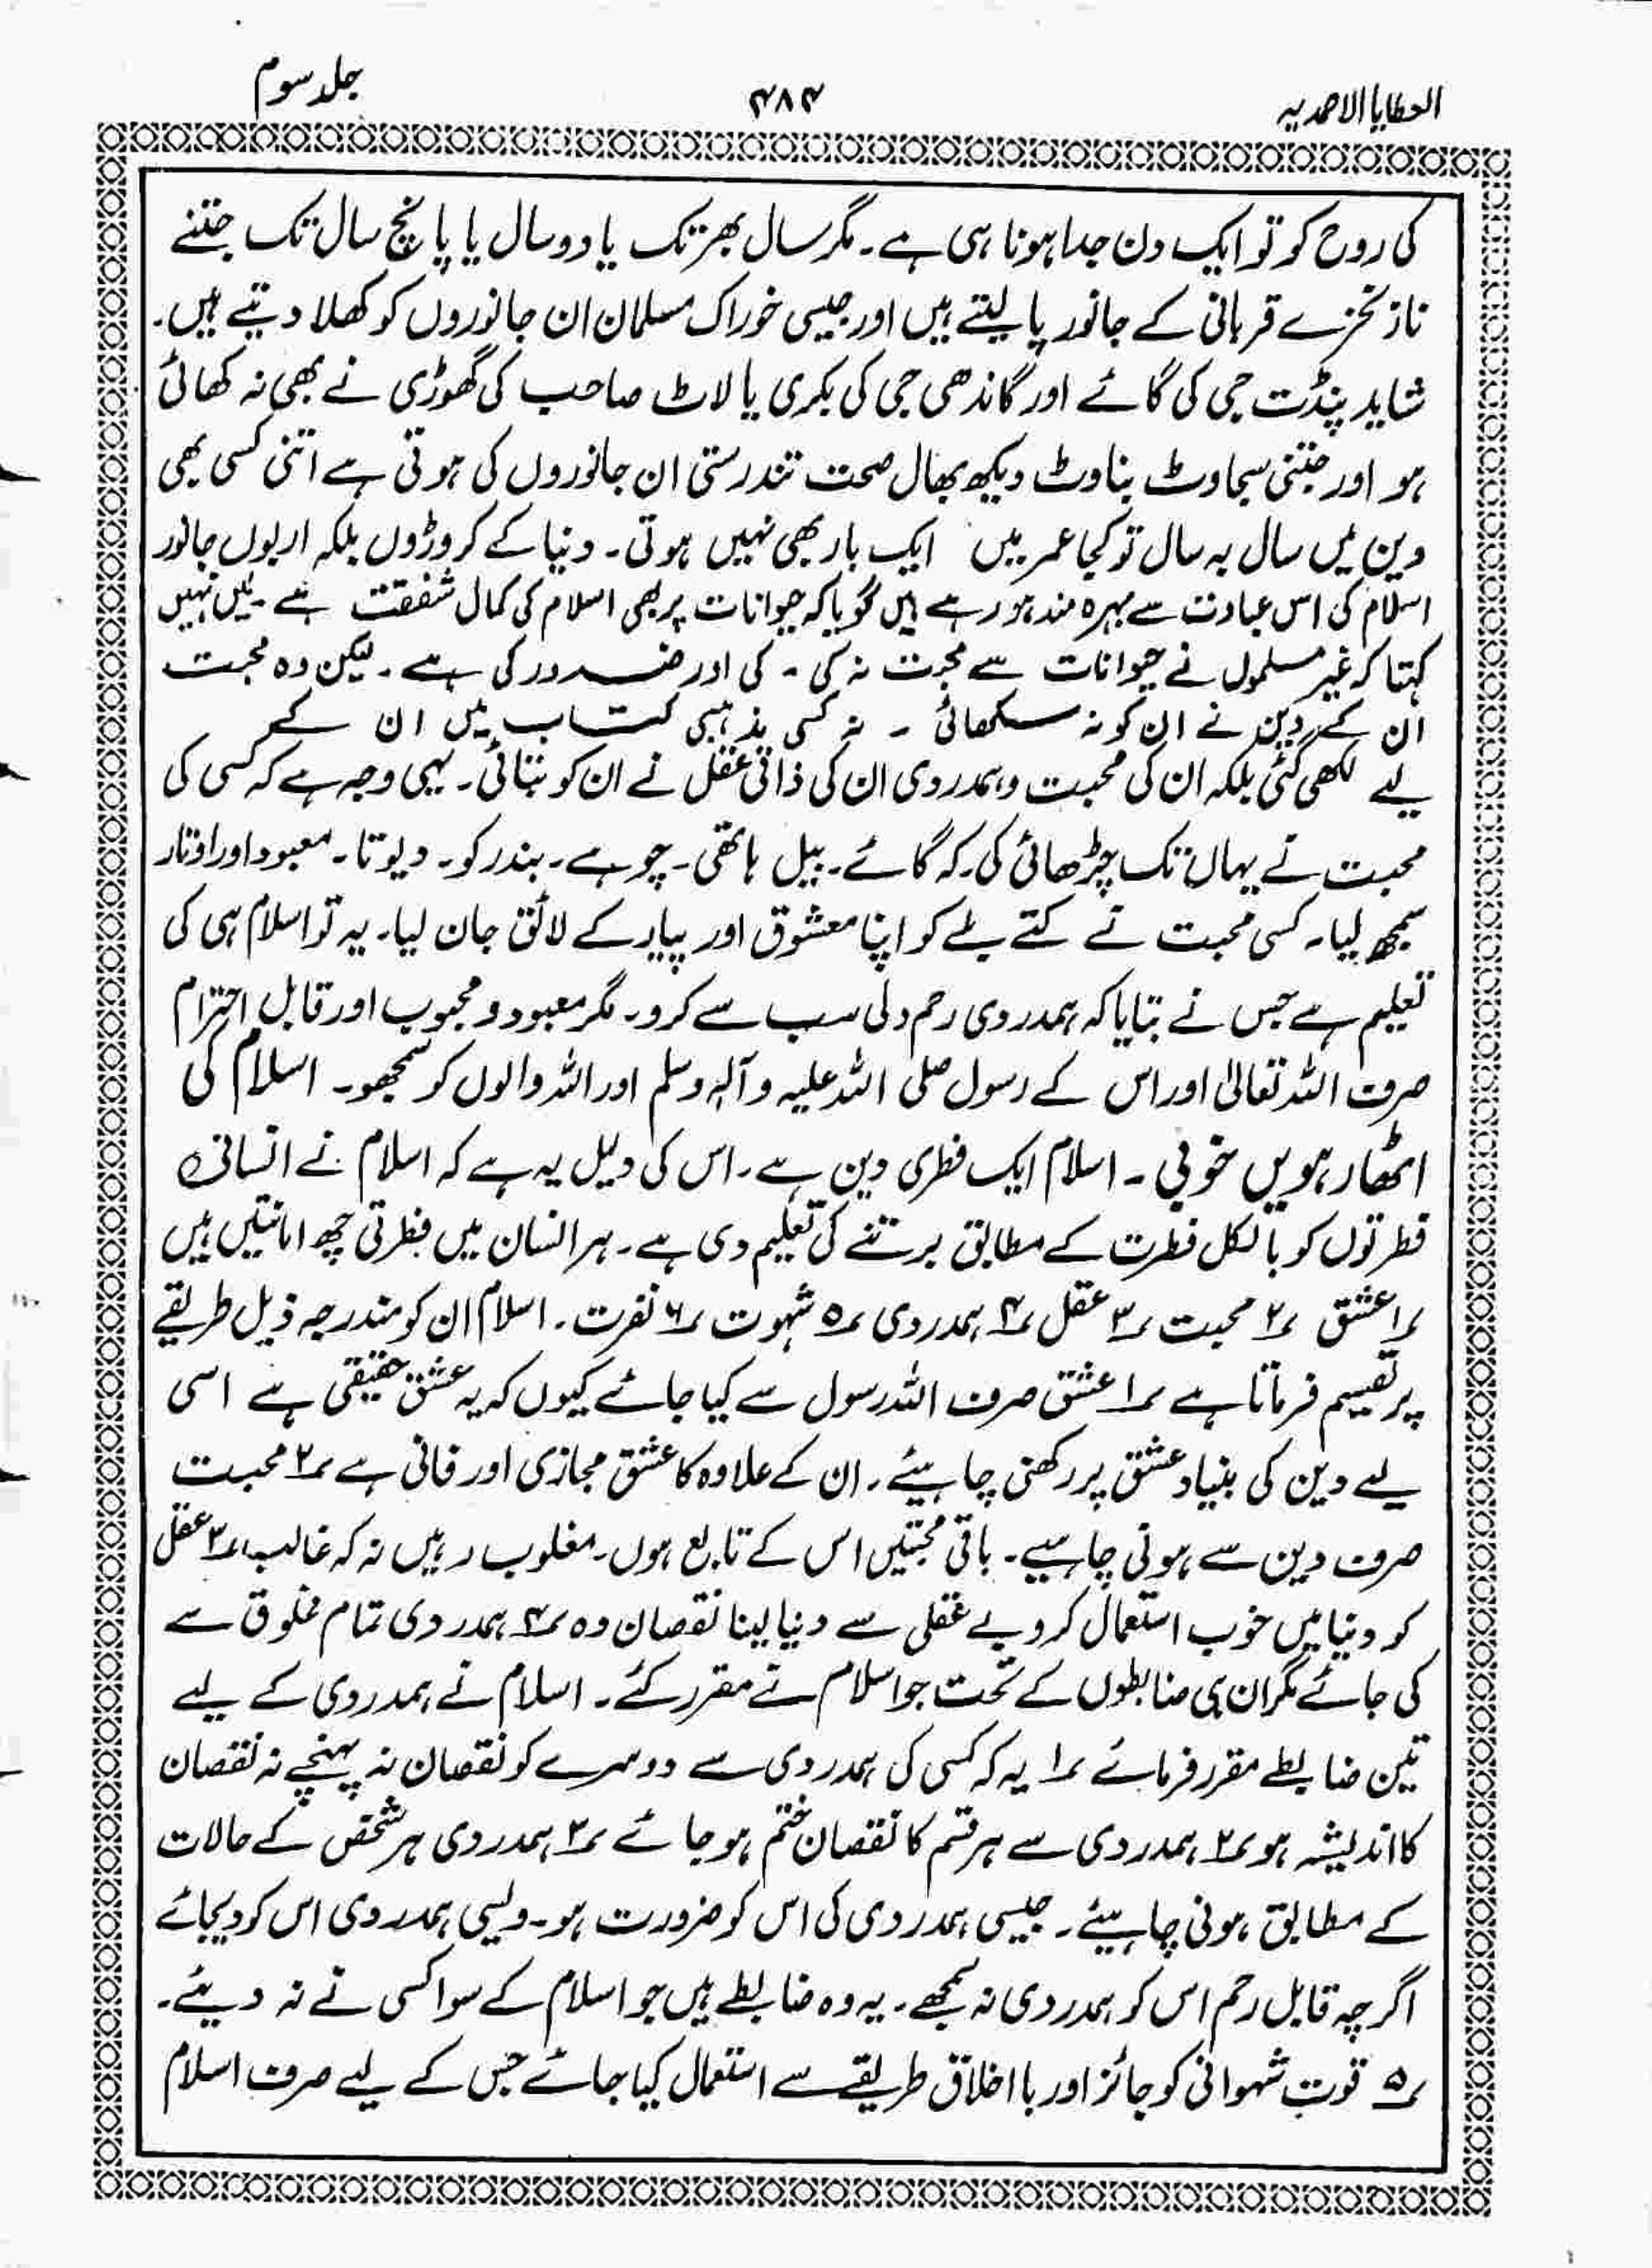 العطایا الاحمدیہ ۴۸۴ جلد سوم
کی روح کو تو ایک دن جدا ہونا ہی ہے۔ مگر سال بھر تک یا دو سال یا پانچ سال تک جتنے
ناز نخزے قربانی کے جانور پا لیتے ہیں اور جیسی خوراک مسلمان ان جانوروں کو کھلا دیتے ہیں۔
شاید پنڈت جی کی گائے اور گاندھی جی کی بکری یا لاٹ صاحب کی گھوڑی نے بھی نہ کھائی
ہو اور جتنی سجاوٹ بناوٹ دیکھ بھال صحت تندرستی ان جانوروں کی ہوتی ہے اتنی کسی بھی
دین میں سال بہ سال تو کجا عمر میں ایک بار بھی نہیں ہوتی۔ دنیا کے کروڑوں بلکہ اربوں جانور
اسلام کی اس عبادت سے بہرہ مند ہو رہے ہیں گویا کہ حیوانات پر بھی اسلام کی کمال شفقت ہے ۔ میں نہیں
کہتا کہ غیر مسلموں نے حیوانات سے محبت نہ کی ۔ کی اور ضرور کی ہے ۔ لیکن وہ محبت
ان کے دین نے ان کو نہ سکھائی ۔ نہ کسی مذہبی کتاب میں ان کے
لیے لکھی گئی بلکہ ان کی محبت و ہمدردی ان کی ذاتی عقل نے ان کو بتائی۔ یہی وجہ ہے کہ کسی کی
محبت نے یہاں تک چڑھائی کی۔ کہ گائے۔ بیل ہاتھی۔ چوہے۔ بندر کو۔ دیوتا۔ معبود اور اوتار
سمجھ لیا۔ کسی محبت نے کتے بلے کو اپنا معشوق اور پیار کے لائق جان لیا۔ یہ تو اسلام ہی کی
تعلیم ہے جس نے بتایا کہ ہمدردی رحم دلی سب سے کرو۔ مگر معبود و محبوب اور قابل احترام
صرف اللہ تعالیٰ اور اس کے رسول صلی اللہ علیہ و آلہ وسلم اور اللہ والوں کو سمجھو۔ اسلام کی
اٹھارہویں خوبی ۔ اسلام ایک فطری دین ہے۔ اس کی دلیل یہ ہے کہ اسلام نے انسانی
فطرتوں کو بالکل فطرت کے مطابق برتنے کی تعلیم دی ہے۔ ہر انسان میں فطرتی چھ امانتیں ہیں
۱؎ عشق ۲؎ محبت ۳؎ عقل ۴؎ ہمدردی ۵؎ شہوت ۶؎ نفرت۔ اسلام ان کو مندرجہ ذیل طریقے
پر تقسیم فرماتا ہے ۱؎ عشق صرف اللہ رسول سے کیا جائے کیوں کہ یہ عشق حقیقی ہے اسی
لیے دین کی بنیاد عشق پر رکھنی چاہیئے۔ ان کے علاوہ کا عشق مجازی اور فانی ہے ۲؎ محبت
صرف دین سے ہونی چاہیے۔ باقی محبتیں اس کے تابع ہوں۔ مغلوب رہیں نہ کہ غالب ۳؎ عقل
کو دنیا میں خوب استعمال کرو بے عقلی سے دنیا لینا نقصان دہ ۴؎ ہمدردی تمام مخلوق سے
کی جائے مگر ان ہی ضابطوں کے تحت جو اسلام نے مقرر کئے۔ اسلام نے ہمدردی کے لیے
تین ضابطے مقرر فرمائے ۱؎ یہ کہ کسی کی ہمدردی سے دوسرے کو نقصان نہ پہنچے نہ نقصان
کا اندیشہ ہو ۲؎ ہمدردی سے ہر قسم کا نقصان ختم ہو جائے ۳؎ ہمدردی ہر شخص کے حالات
کے مطابق ہونی چاہیئے۔ جیسی ہمدردی کی اس کو ضرورت ہو۔ ویسی ہمدردی اس کو دیجائے
اگرچہ قابل رحم اس کو ہمدردی نہ سمجھے۔ یہ وہ ضابطے ہیں جو اسلام کے سوا کسی نے نہ دیئے۔
۵؎ قوت شہوانی کو جائز اور با اخلاق طریقے سے استعمال کیا جائے جس کے لیے صرف اسلام